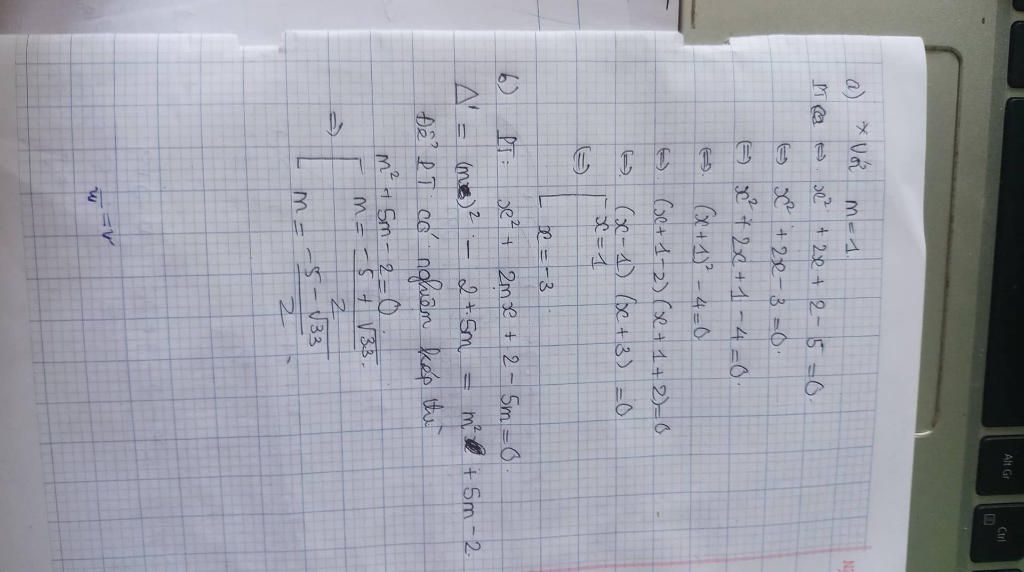 a) * Với m = 1
PT ⇔ x² + 2x + 2 - 5 = 0.
⇔ x² + 2x - 3 = 0.
⇔ x² + 2x + 1 - 4 = 0.
⇔ (x+1)² - 4 = 0
⇔ (x+1-2)(x+1+2) = 0
⇔ (x-1)(x+3) = 0
⇔ [ x = 1
x = -3
b) PT: x² + 2mx + 2 - 5m = 0.
Δ' = (m)² - 2 + 5m = m² + 5m - 2.
Để PT có nghiệm kép thì
m² + 5m - 2 = 0.
⇒ [ m = -5 + √33 / 2
m = -5 - √33 / 2
Alt Gr
Ctrl